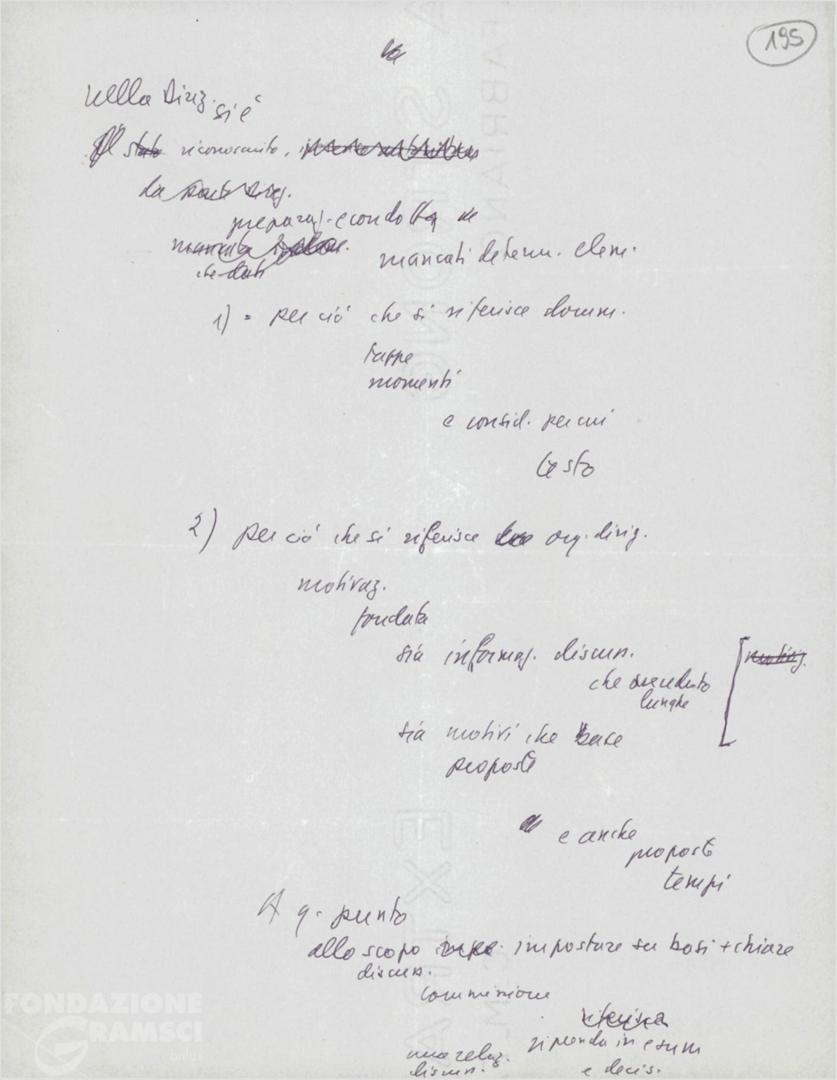 195
nella Direz. si è
riconosciuto,
preparaz. e condotta
mancati determ. elem.
1) = per ciò che si riferisce docum.
tappe
momenti
e consid. per cui
testo
2) per ciò che si riferisce org. dirig.
motivaz.
fondata
sia informaz. discuss.
che preceduto
lunghe
sia motivi che base
proposte
e anche
proposte
tempi
A q. punto
allo scopo impostare su basi + chiare
discuss.
commissione
riprenda in esam
una relaz.
discuss. e decis.
FONDAZIONE
GRAMSCI
onlus